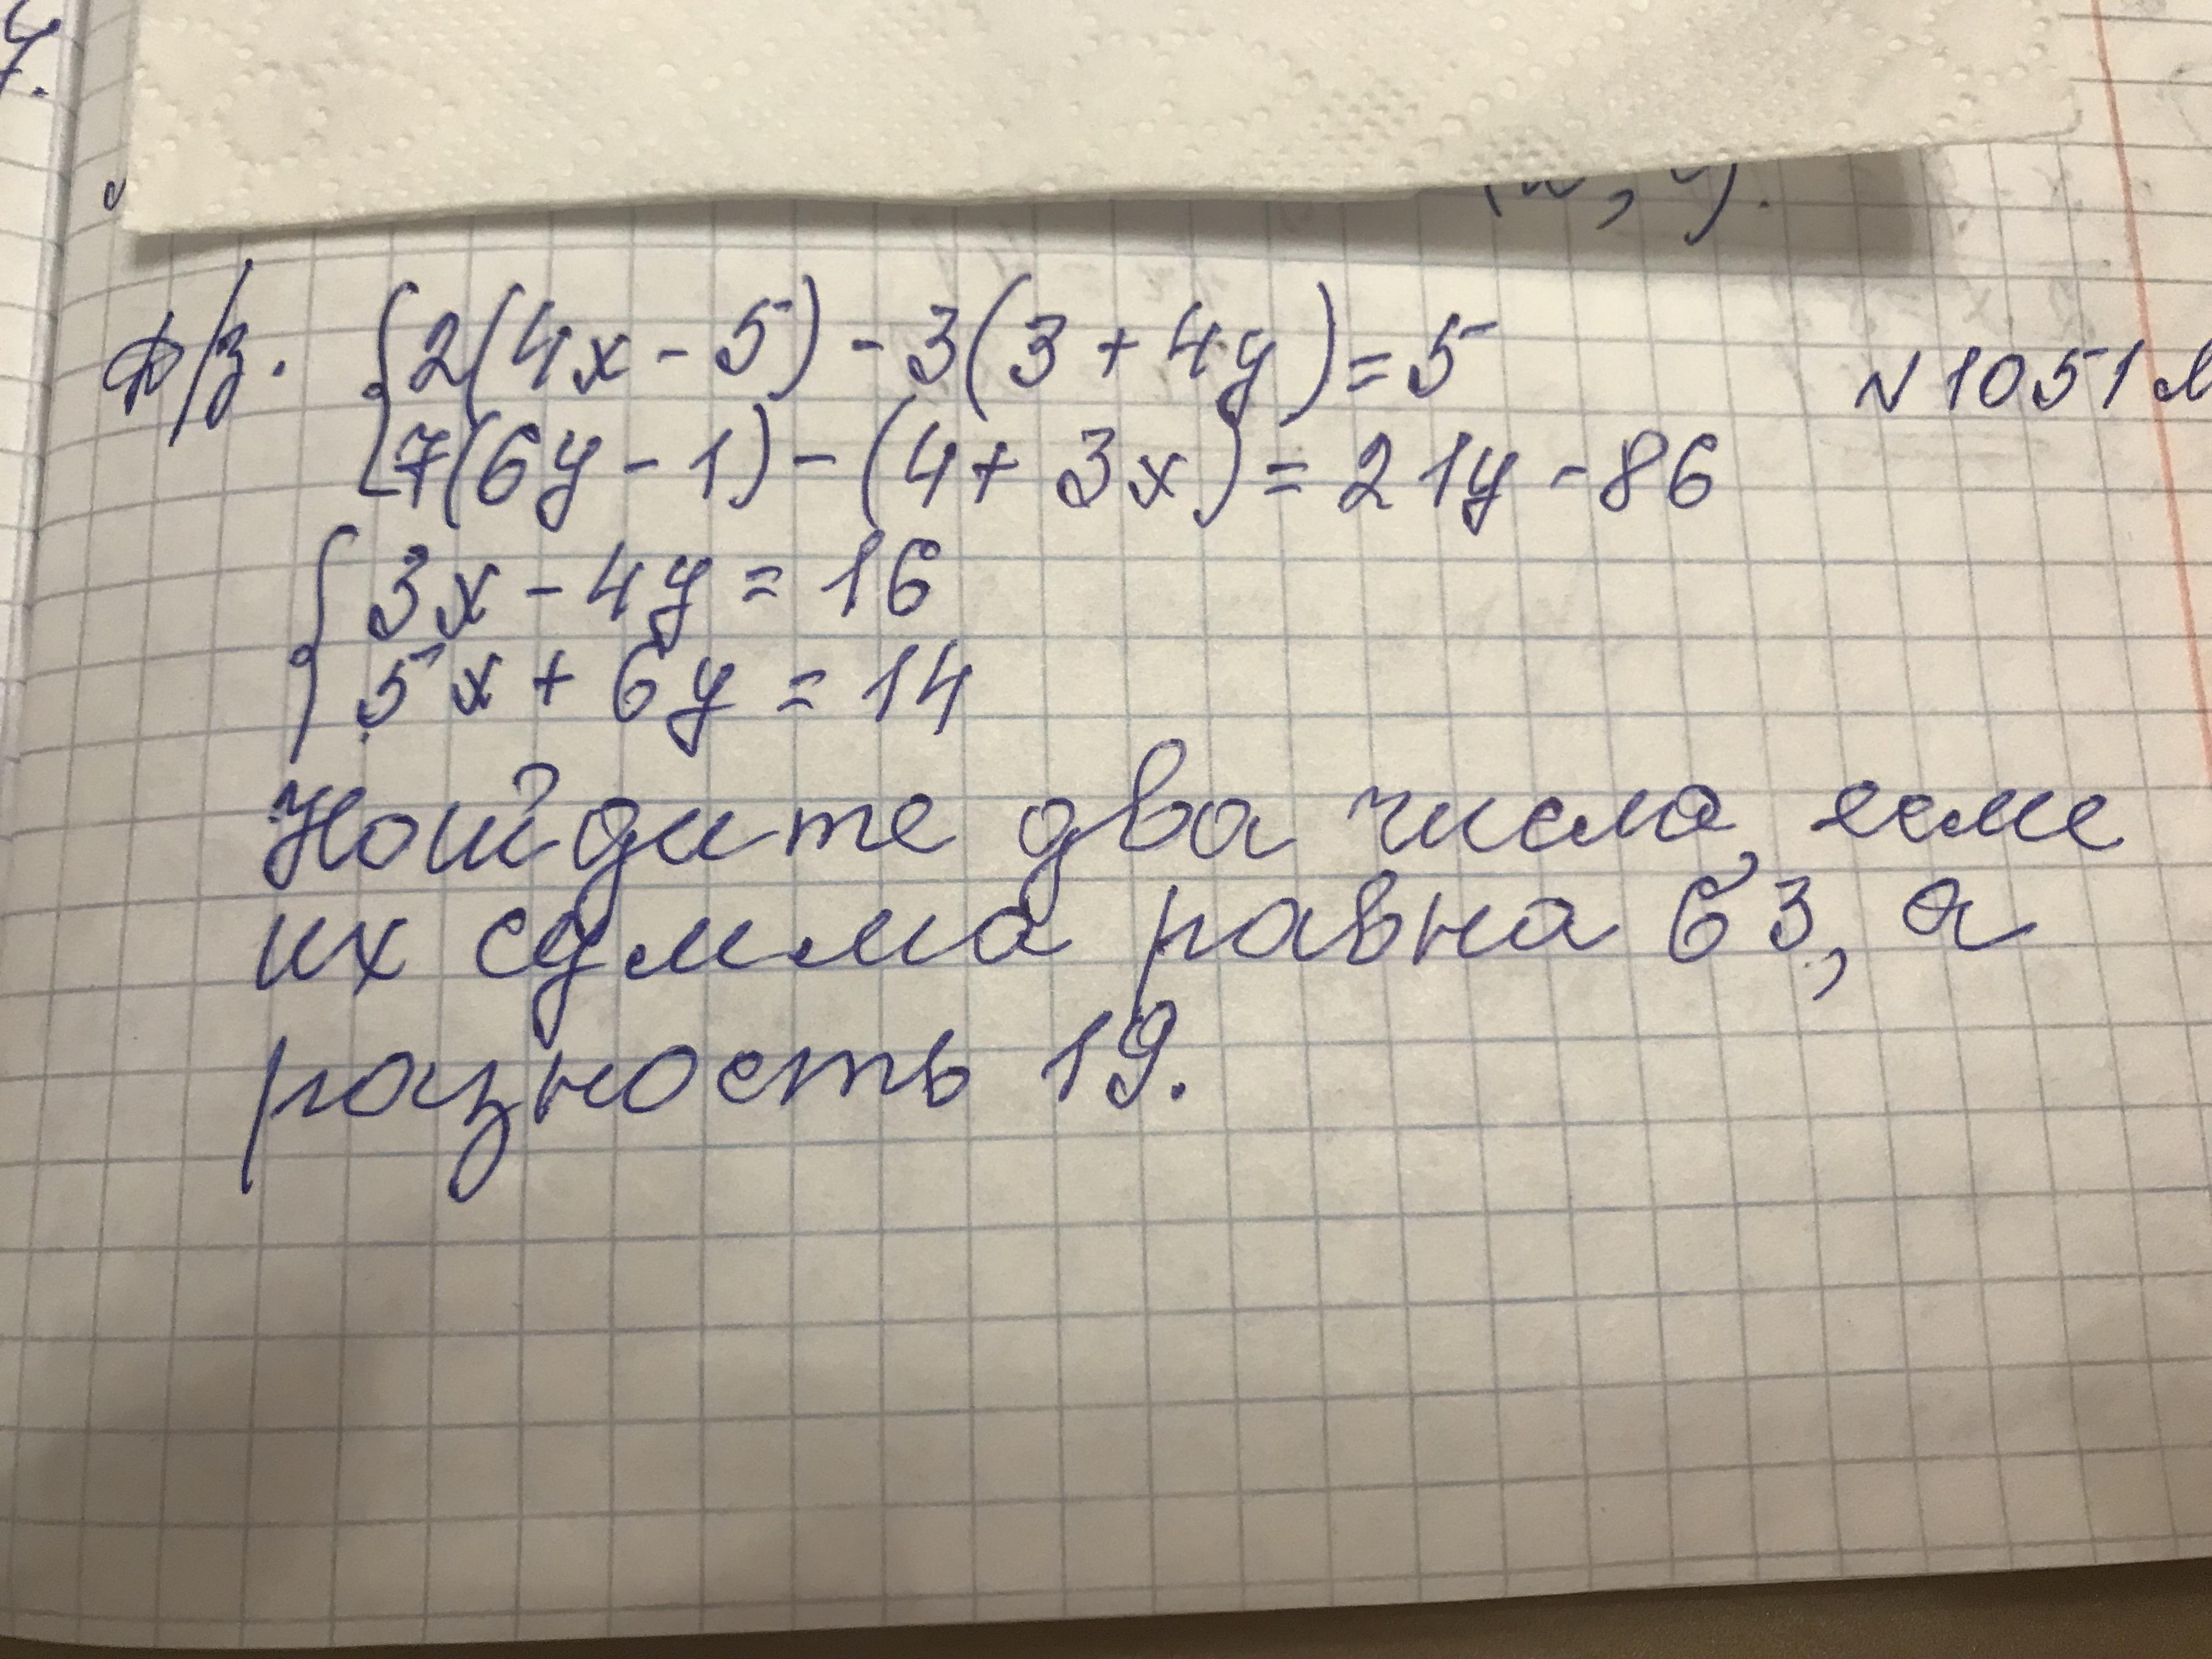 Д/з. {2(4x - 5) - 3(3 + 4y) = 5 N 1051
{7(6y - 1) - (4 + 3x) = 21y - 86
{3x - 4y = 16
{5x + 6y = 14
Найдите два числа, если
их сумма равна 63, а
разность 19.